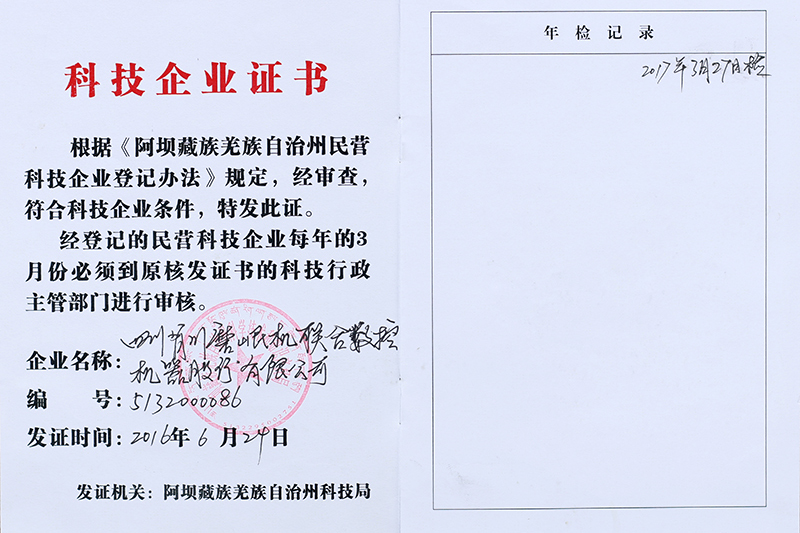 科技企业证书
根据《阿坝藏族羌族自治州民营
科技企业登记办法》规定，经审查，
符合科技企业条件，特发此证。
经登记的民营科技企业每年的3
月份必须到原核发证书的科技行政
主管部门进行审核。
企业名称：四川川磨岷机联合数控
机器股份有限公司
编 号：5132000086
发证时间：2016年6月24日
发证机关：阿坝藏族羌族自治州科技局
年检记录
2017年3月27日检